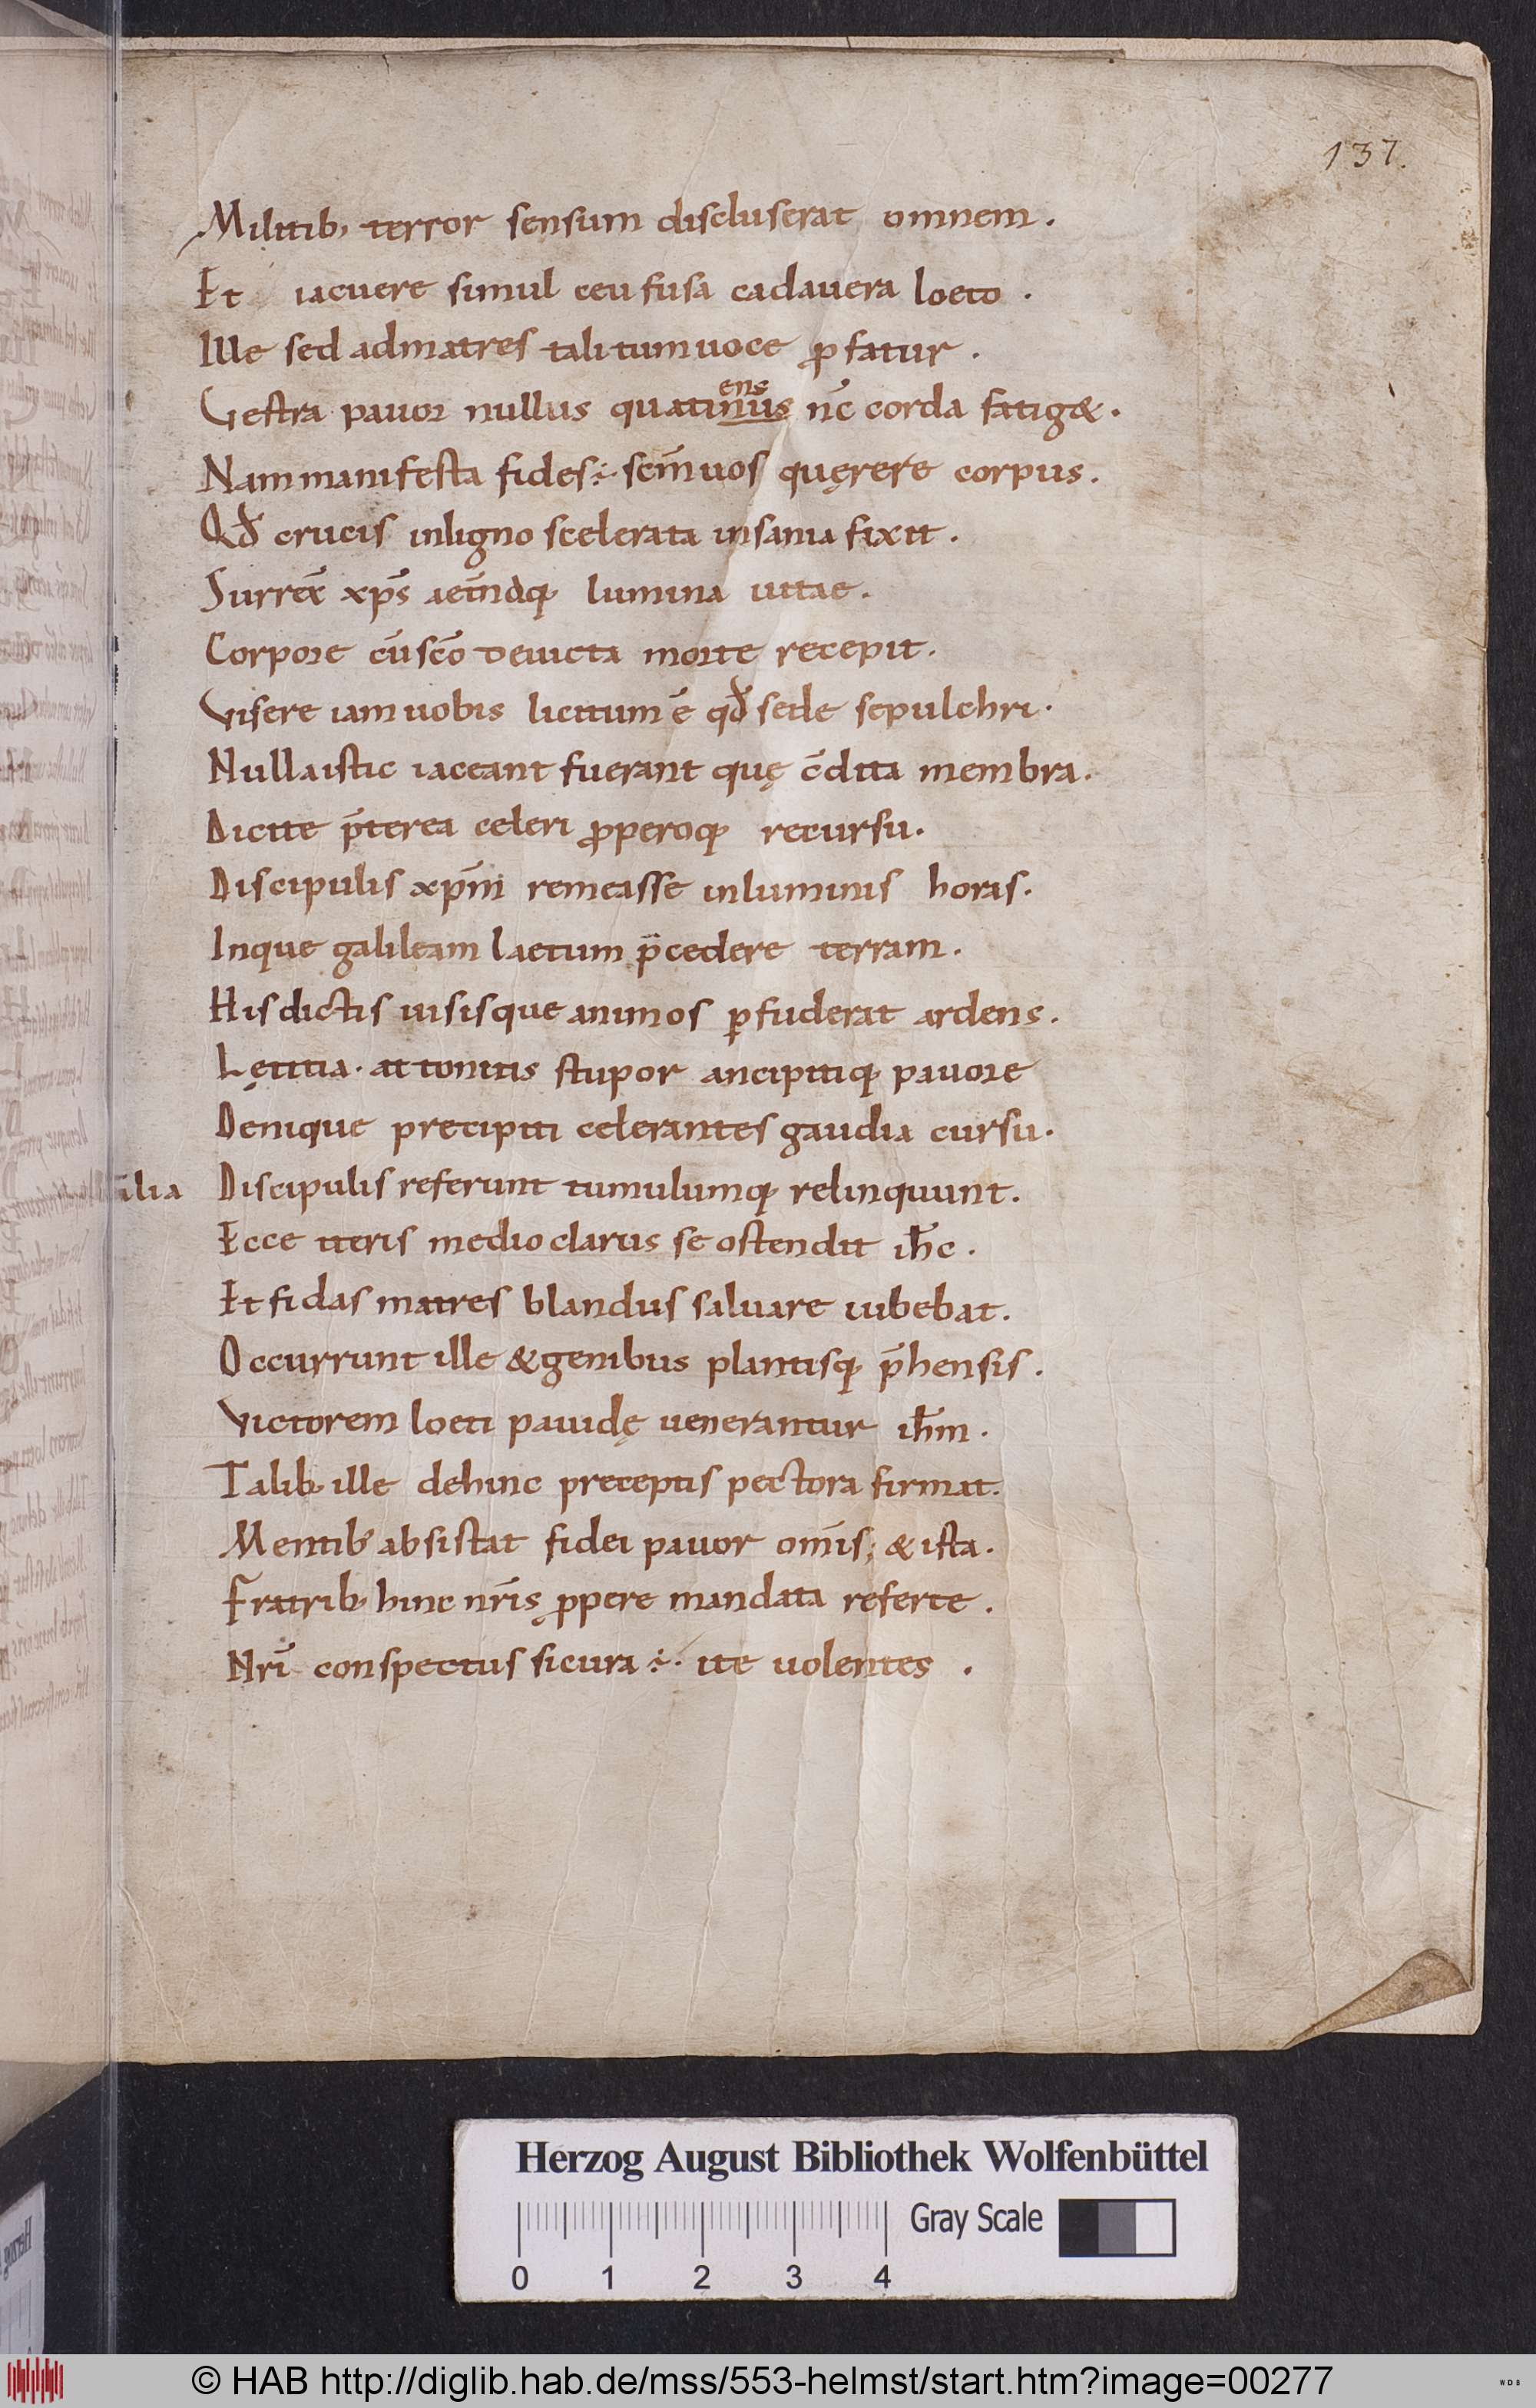 137.
Militib; terror sensum discluserat omnem.
Et iacuere simul ceu fusa cadauera loeto.
Ille sed admatres tali tumuoce ꝓfatur.
ens
Vestra pauor nullus quatinus nc̄ corda fatig&.
Nam manifesta fides: scm̄ uos quęrere corpus.
Qđ crucis inligno scelerata insania fixit.
Surrex̄ xp̄s aet̄nąq; lumina uitae.
Corpore cū scō deuicta morte recepit.
Visere iam uobis licitum ē qđ sede sepulchri.
Nulla istic iaceant fuerant quę c̄dita membra.
Dicite p̄terea celeri ꝓperoq; recursu.
Discipulis xp̄m remeasse inluminis horas.
Inque galileam laetum p̄cedere terram.
His dictis uisisque animos ꝑfuderat ardens.
Lętitia. attonitis stupor ancipitiq; pauore
Denique precipiti celerantes gaudia cursu.
Discipulis referunt tumulumq; relinquunt.
Ecce iteris medio clarus se ostendit ih̄c.
Et fidas matres blandus saluare iubebat.
Occurrunt ille & genibus plantisq; p̄hensis.
Victorem loeti pauidę uenerantur ih̄m.
Talib; ille dehinc preceptis pectora firmat.
Mentib; absistat fidei pauor om̄is; & ista.
Fratrib; hinc nr̄is ꝓpere mandata referte.
Nr̄i conspectus si cura: ite uolentes.
Herzog August Bibliothek Wolfenbüttel
Gray Scale
0 1 2 3 4
© HAB http://diglib.hab.de/mss/553-helmst/start.htm?image=00277